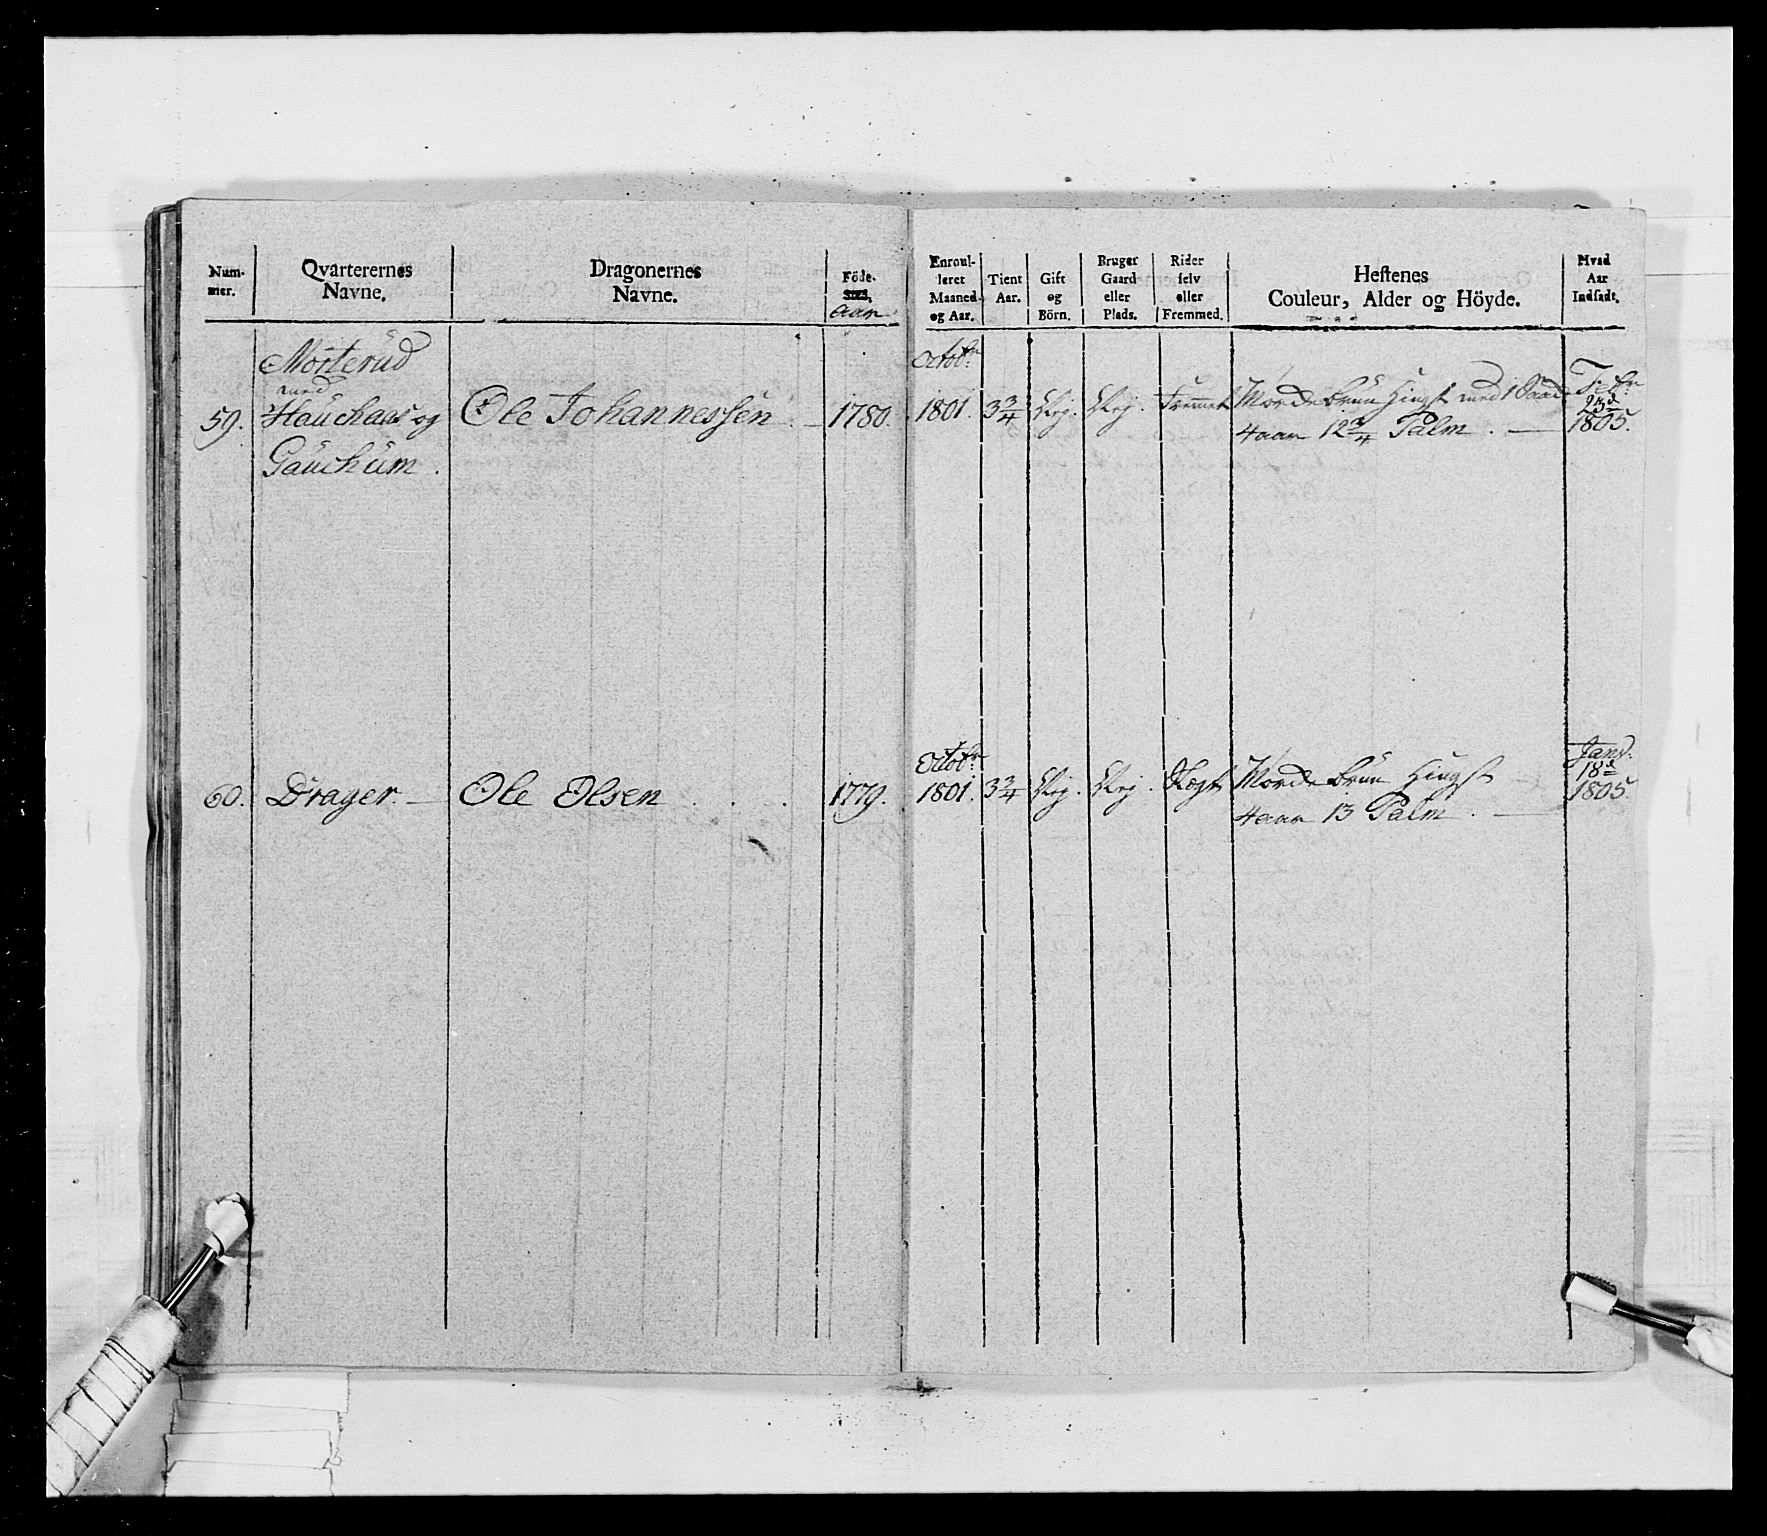 Num-
mer.
Qvarterernes
Navne.
Dragonernes
Navne.
Föde-
Sted.
Aar
Enroul-
leret
Maaned
og Aar.
Tient
Aar.
Gift
og
Börn.
Bruger
Gaard
eller
Plads.
Rider
selv
eller
Fremmed.
Hestenes
Couleur, Alder og Höyde.
Hvad
Aar
Indsadt.
59.
Morterud
med
Hauchaas og
Gauchum.
Ole Johannessen.
1780.
Octobr
1801.
3 3/4
Nej.
Nej.
Fremmet
Morde brun Hingst med 1
4 aar 12 3/4 Palm.
Febr
23d
1805.
60.
Drager.
Ole Olsen
1779.
Octobr
1801.
3 3/4
Nej.
Nej.
Morde brun Hingst
4 aar 13 Palm.
Janv.
18d
1805.